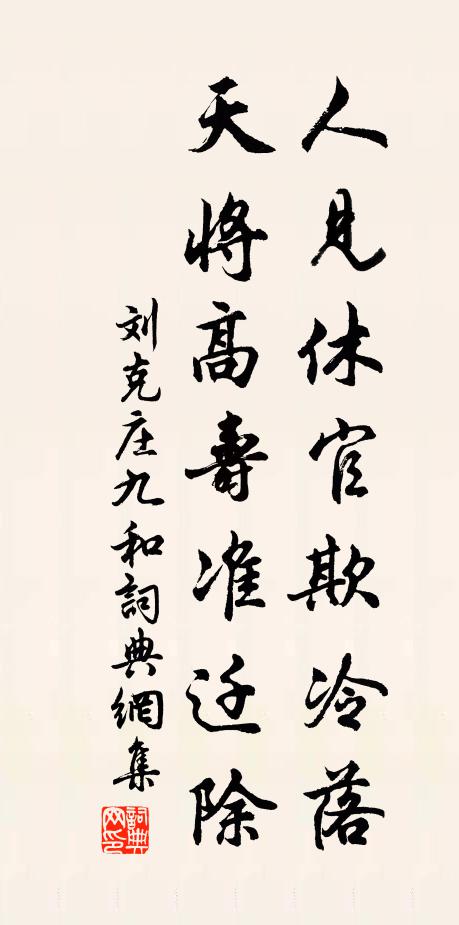 人見休官欺冷落
天將高壽准迁除
刘克庄九和詞典網集
詞典
网印